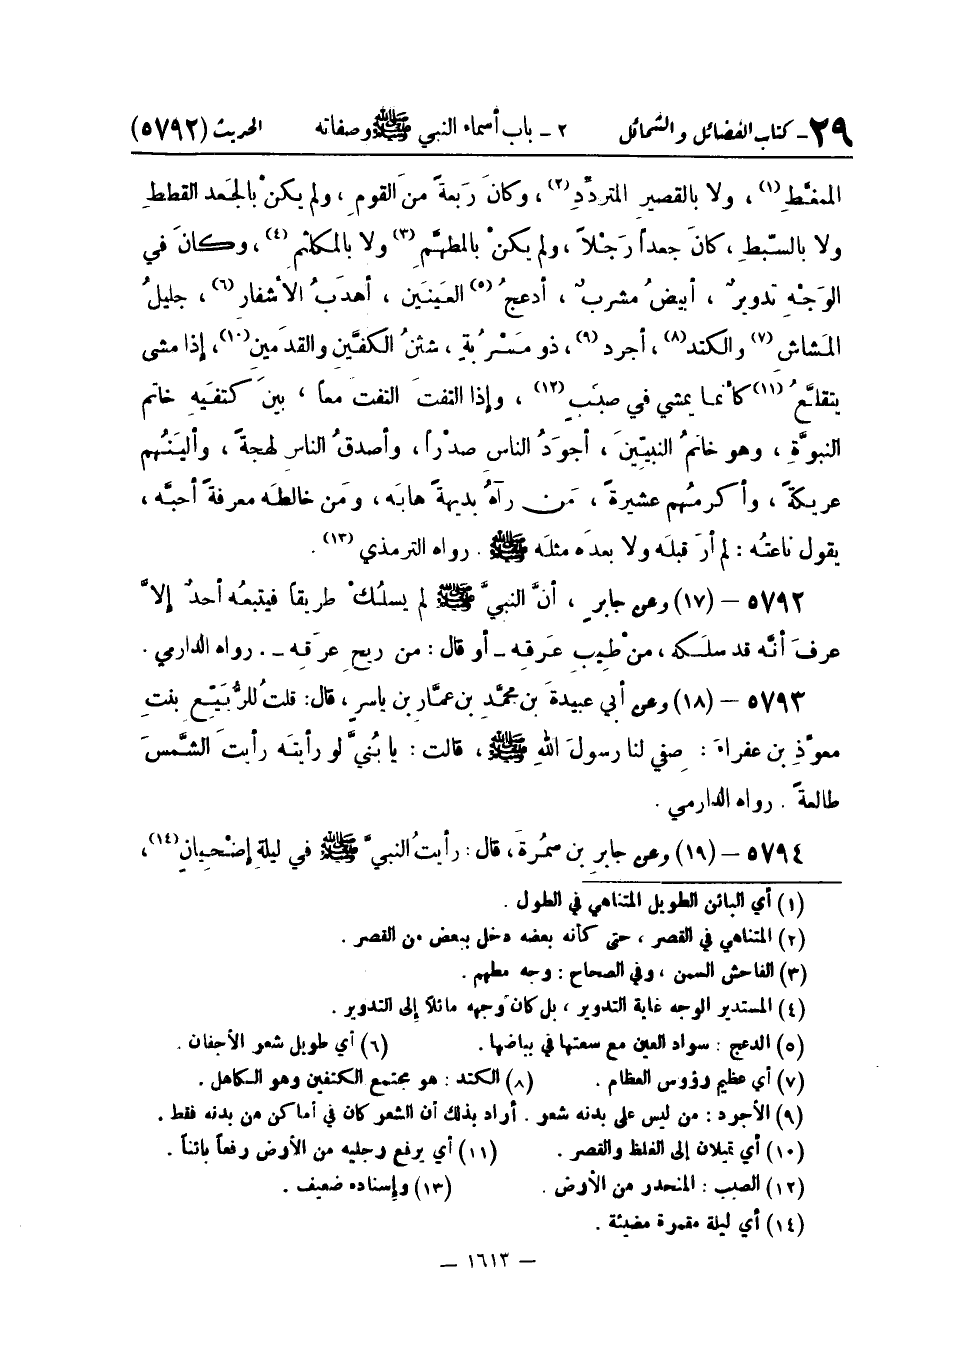 ٢٩ - كتاب الفضائل والشمائل ٢ - باب أسماء النبي ﷺ وصفاته الحديث (٥٧٩٢)
الممغَّطِ(١) ، ولا بالقصيرِ المتردِّدِ(٢) ، وكانَ رَبعةً منَ القومِ ، ولم يكنْ بالجَعدِ القططِ
ولا بالسَّبطِ ، كانَ جعداً رَجْلاً ، ولم يكنْ بالمطهَّمِ(٣) ولا بالمكلثمِ(٤) ، وكانَ في
الوَجْهِ تدويرٌ ، أبيضُ مشربٌ ، أدعجُ(٥) العَينَينِ ، أهدَبُ الأشفارِ(٦) ، جليلُ
المَشاشِ(٧) والكتد(٨) ، أجرد(٩) ، ذو مَسْرُبةٍ ، شثنُ الكفَّينِ والقدمَينِ(١٠) ، إذا مشى
يتقلَّعُ(١١) كأنما يمشي في صبَبٍ(١٢) ، وإذا التفتَ التفتَ معاً ، بينَ كتفَيهِ خاتم
النبوَّةِ ، وهو خاتمُ النبيّينَ ، أجودُ الناسِ صدْراً ، وأصدقُ الناسِ لهجةً ، وأليَنُهم
عريكةً ، وأكرمُهم عشيرةً ، مَن رآهُ بديهةً هابَه ، ومَن خالطَه معرفةً أحبَّه ،
يقول ناعتُه : لم أرَ قبلَه ولا بعدَه مثلَه ﷺ . رواه الترمذي(١٣) .
٥٧٩٢ - (١٧) وعن جابرٍ ، أنَّ النبيَّ ﷺ لم يسلُكْ طريقاً فيتبعُه أحدٌ إلاَّ
عرفَ أنَّه قد سلَكَه ، من طِيبِ عَرقِه - أو قال : من ريحِ عرَقِه - . رواه الدارمي .
٥٧٩٣ - (١٨) وعن أبي عبيدةَ بنِ محمَّدِ بنِ عمَّارِ بنِ ياسرٍ ، قال: قلتُ للرُّبَيِّعِ بنتِ
معوِّذِ بنِ عفراءَ : صِفي لنا رسولَ اللهِ ﷺ ، قالت : يا بُنيَّ لو رأيتَه رأيتَ الشَّمسَ
طالعةً . رواه الدارمي .
٥٧٩٤ - (١٩) وعن جابرِ بنِ سمُرةَ ، قال : رأيتُ النبيَّ ﷺ في ليلةِ إضْحِيانٍ(١٤) ،
(١) أي البائن الطويل المتناهي في الطول .
(٢) المتناهي في القصر ، حتى كأنه بعضه دخل ببعض من القصر .
(٣) الفاحش السمن ، وفي الصحاح : وجه مطهم .
(٤) المستدير الوجه غاية التدوير ، بل كان وجهه مائلاً إلى التدوير .
(٥) الدعج : سواد العين مع سعتها في بياضها . (٦) أي طويل شعر الأجفان .
(٧) أي عظيم رؤوس العظام . (٨) الكتد : هو مجتمع الكتفين وهو الكاهل .
(٩) الأجرد : من ليس على بدنه شعر . أراد بذلك أن الشعر كان في أماكن من بدنه فقط .
(١٠) أي تميلان إلى الغلظ والقصر . (١١) أي يرفع رجليه من الأرض رفعاً بائناً .
(١٢) الصبب : المنحدر من الأرض . (١٣) وإسناده ضعيف .
(١٤) أي ليلة مقمرة مضيئة .
- ١٦١٣ -